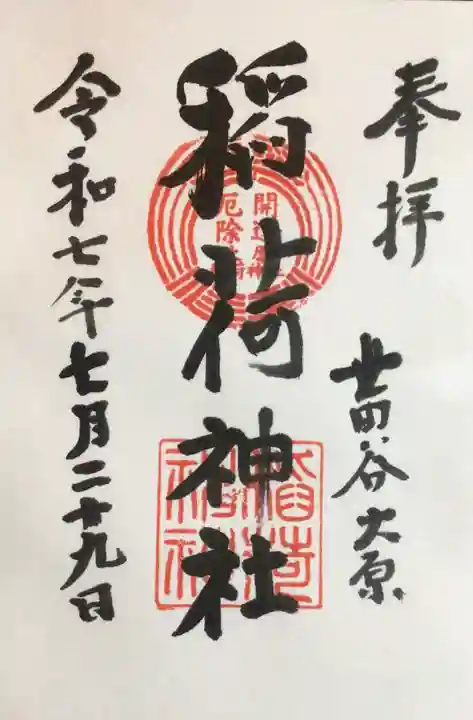 奉拝
世田谷大原
稲荷神社
開運
厄除
稲荷神社
令和七年七月二十九日